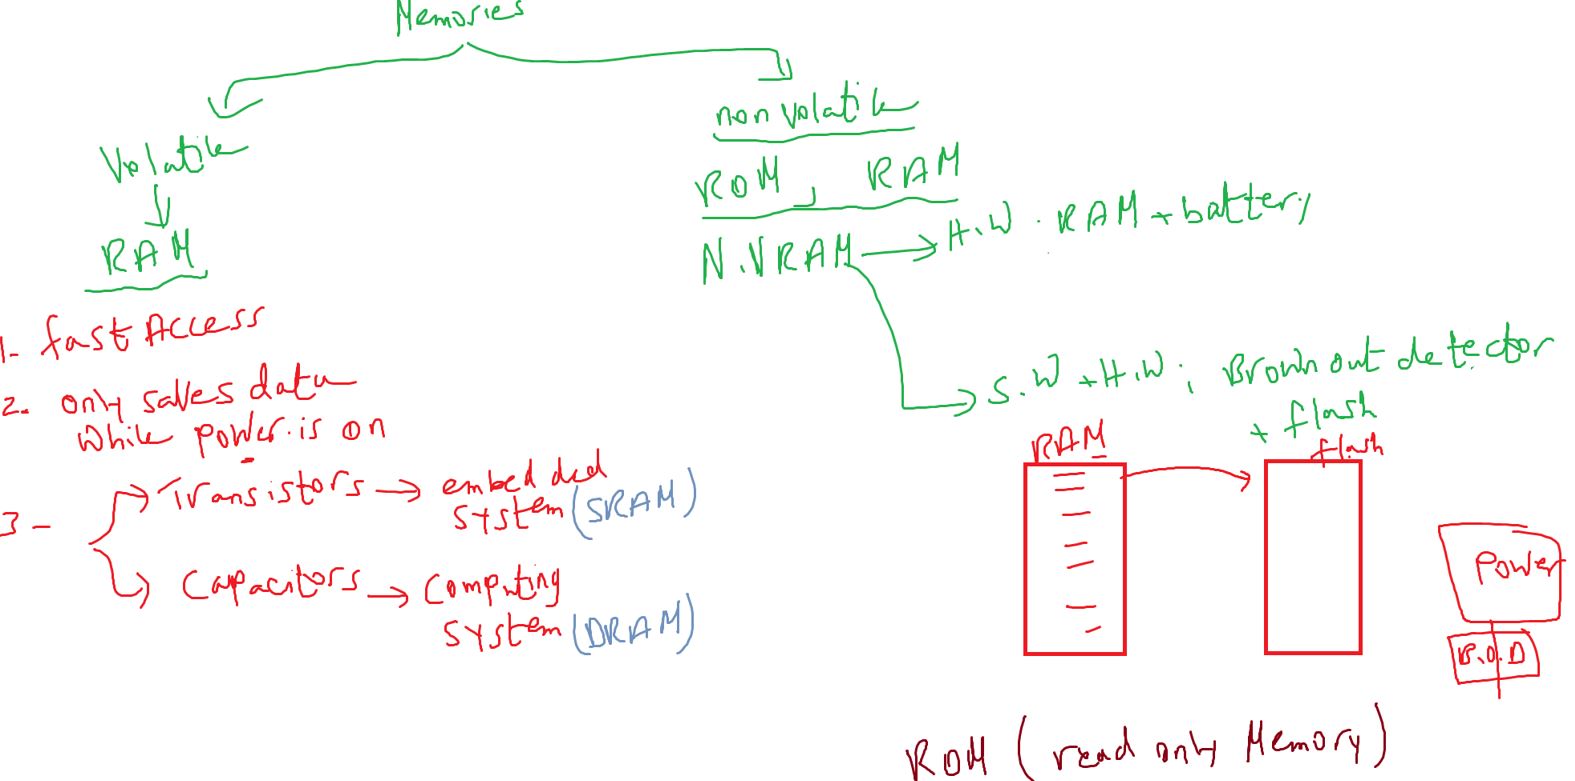 Memories
Volatile
RAM
1- fast Access
2- only saves data
while power is on
3-
Transistors → embedded
system (SRAM)
Capacitors → Computing
system (DRAM)
non volatile
ROM, RAM
N.VRAM → H.W. RAM + battery
→ S.W + H.W; Brown out detector
+ flash
RAM
flash
Power
B.O.D
ROM (read only Memory)